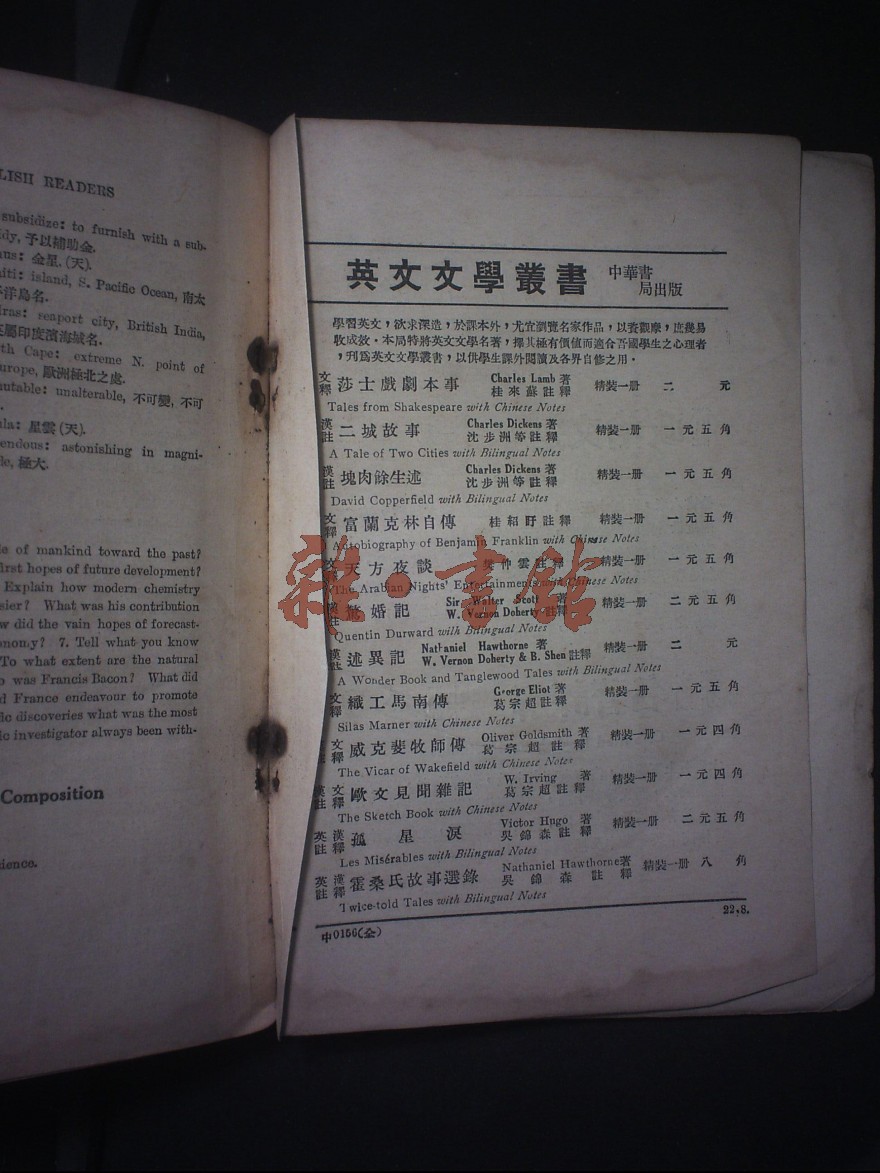 LISH READERS
subsidize: to furnish with a sub-
dy, 予以補助金.
us: 金星.(天).
iti: island, S. Pacific Ocean, 南太
洋島名.
ras: seaport city, British India,
屬印度濱海城名.
th Cape: extreme N. point of
urope, 歐洲極北之處.
utable: unalterable, 不可變, 不可
ula: 星雲(天).
endous: astonishing in magni-
de, 極大.
e of mankind toward the past?
irst hopes of future development?
Explain how modern chemistry
sier? What was his contribution
w did the vain hopes of forecast-
onomy? 7. Tell what you know
To what extent are the natural
o was Francis Bacon? What did
d France endeavour to promote
fic discoveries what was the most
ic investigator always been with-
Composition
ience.
英文文學叢書 中華書局出版
學習英文，欲求深造，於課本外，尤宜瀏覽名家作品，以資觀摩，庶幾易
收成效。本局特將英文文學名著，擇其極有價值而適合吾國學生之心理者
，刊爲英文文學叢書，以供學生課外閱讀及各界自修之用。
文釋 莎士戲劇本事 Charles Lamb 著 桂來蘇註釋 精裝一册 二元
Tales from Shakespeare with Chinese Notes
漢註 二城故事 Charles Dickens 著 沈步洲等註釋 精裝一册 一元五角
A Tale of Two Cities with Bilingual Notes
漢註 塊肉餘生述 Charles Dickens 著 沈步洲等註釋 精裝一册 一元五角
David Copperfield with Bilingual Notes
文釋 富蘭克林自傳 桂紹盱註釋 精裝一册 一元五角
Autobiography of Benjamin Franklin with Chinese Notes
文 天方夜談 樊仲雲註釋 精裝一册 一元五角
The Arabian Nights' Entertainments with Chinese Notes
婚記 Sir Walter Scott 著 W. Vernon Doherty 註釋 精裝一册 二元五角
Quentin Durward with Bilingual Notes
漢註 述異記 Nathaniel Hawthorne 著 W. Vernon Doherty & B. Shen 註釋 精裝一册 二元
A Wonder Book and Tanglewood Tales with Bilingual Notes
文釋 織工馬南傳 George Eliot 著 葛宗超註釋 精裝一册 一元五角
Silas Marner with Chinese Notes
文釋 威克斐牧師傳 Oliver Goldsmith 著 葛宗超註釋 精裝一册 一元四角
The Vicar of Wakefield with Chinese Notes
漢文註釋 歐文見聞雜記 W. Irving 著 葛宗超註釋 精裝一册 一元四角
The Sketch Book with Chinese Notes
英漢註釋 孤星淚 Victor Hugo 著 吳錦森註釋 精裝一册 二元五角
Les Misérables with Bilingual Notes
英漢註釋 霍桑氏故事選錄 Nathaniel Hawthorne 著 吳錦森註釋 精裝一册 八角
Twice-told Tales with Bilingual Notes
中0156(全) 22,8.
雜·書館